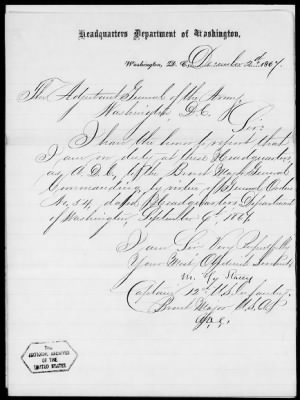 Headquarters Department of Washington,
Washington, D. C., December 2d. 1867.
The Adjutant General of the Army,
Washington D.C.
Sir:
I have the honor to report that
I am on duty at these Headquarters
as A.D.C. to the Brevet Major General
Commanding, by virtue of General Orders
No. 54, dated Headquarters Department
of Washington, September 9th. 1867.
I am Sir Very Respectfully
Your Most Obedient Servant
Captain 12th U.S. Infantry.
Brevet Major U.S.A.
THE
NATIONAL ARCHIVES
OF THE
UNITED STATES